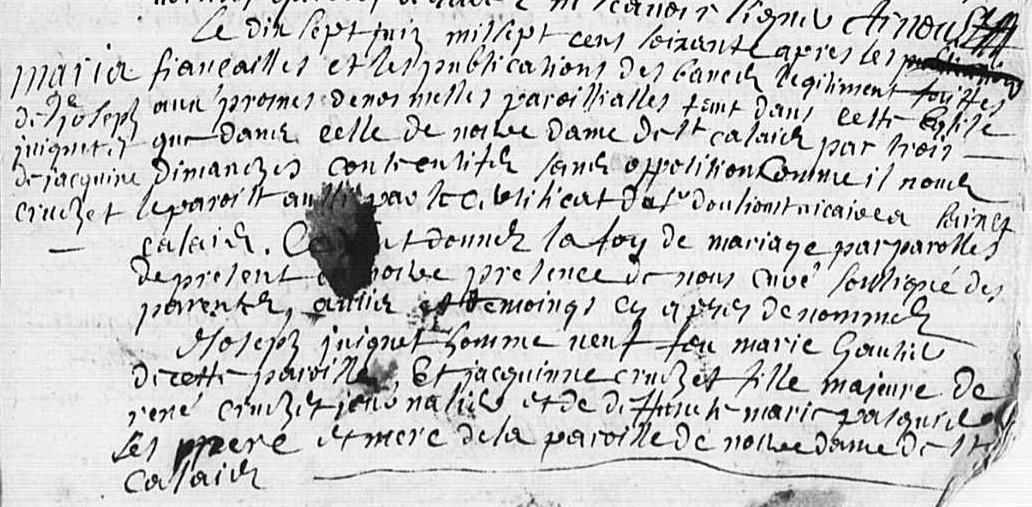 Le dix sept juin mil sept cens soixante apres les
fiançailles et les publications des bancs legitiment faittes
aux prosnes de nos messes paroissialles tant dans cette Eglise
que dans celle de notre dame de st calais par trois
Dimanches consecutifs sans oppositions Comme il nous
le paroist aussi par le certificat du sr vicaire a sainct
calais. ont donnés la foy de mariage par parolles
de present en notre presence de nous curé soussigné des
parents, amis et temoings cy apres denommés
Joseph juignet homme veuf feu marie Gautier
de cette paroisse, Et jacquinne cruchet fille majeure de
rené cruchet journalier et de deffuncte marie pasquier
ses pere et mere de la paroisse de notre dame de st
calais
maria
ge
de Joseph
juignet &
de jacquine
cruchet